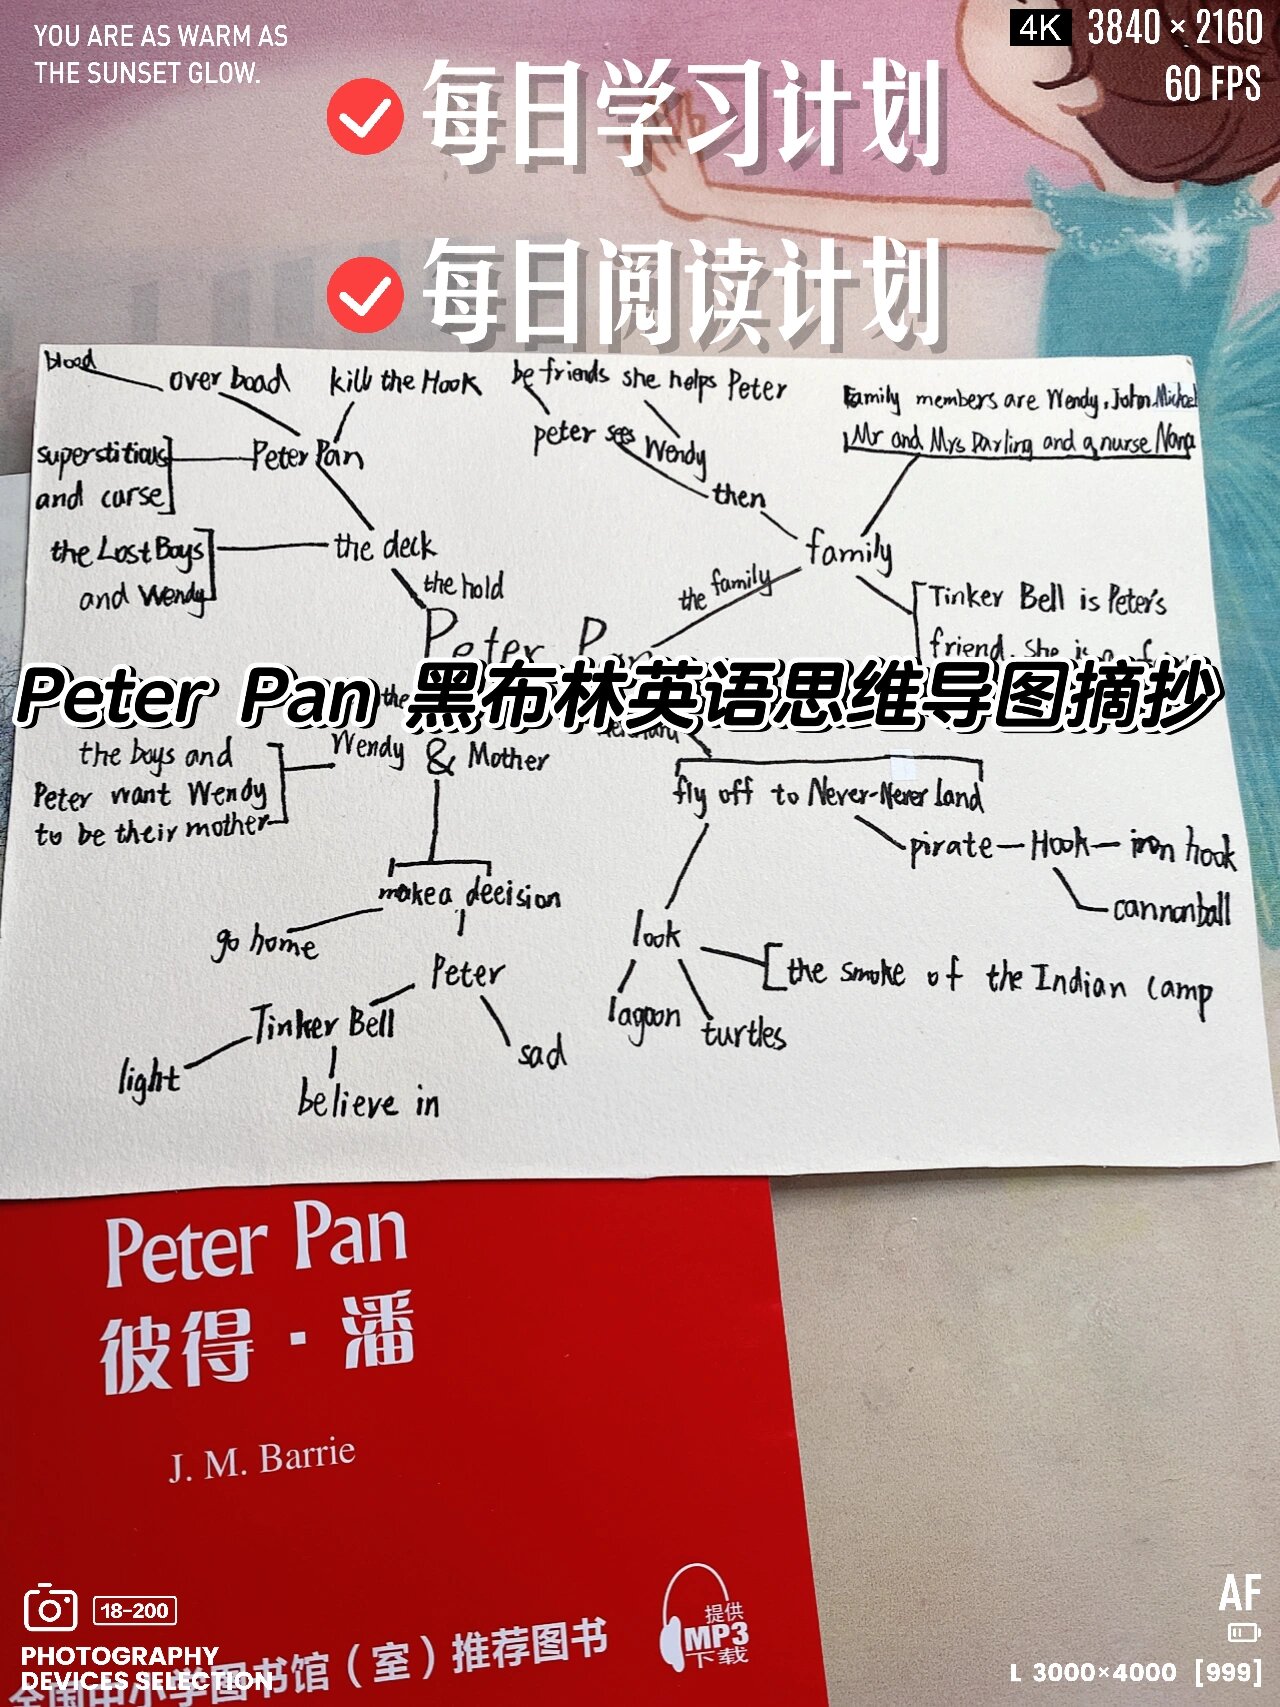 YOU ARE AS WARM AS
THE SUNSET GLOW.
4K 3840 × 2160
60 FPS
每日学习计划
每日阅读计划
blood
over boad
kill the Hook
be friends she helps Peter
Family members are Wendy, John Michael
Mr and Mrs Darling and a nurse Nana
superstitious
and curse
Peter Pan
peter sees Wendy
then
the Lost Boys
and Wendy
the deck
family
the hold
the family
Tinker Bell is Peter's
friend. She is
Peter Pan
Peter Pan 黑布林英语思维导图摘抄
the
the boys and
Peter want Wendy
to be their mother
Wendy & Mother
fly off to Never-Never land
pirate
Hook
iron hook
cannonball
make a decision
go home
Peter
look
the smoke of the Indian camp
lagoon
turtles
Tinker Bell
sad
light
believe in
Peter Pan
彼得·潘
J. M. Barrie
提供
MP3
下载
全国中小学图书馆（室）推荐图书
18-200
PHOTOGRAPHY
DEVICES SELECTION
AF
L 3000×4000 [999]